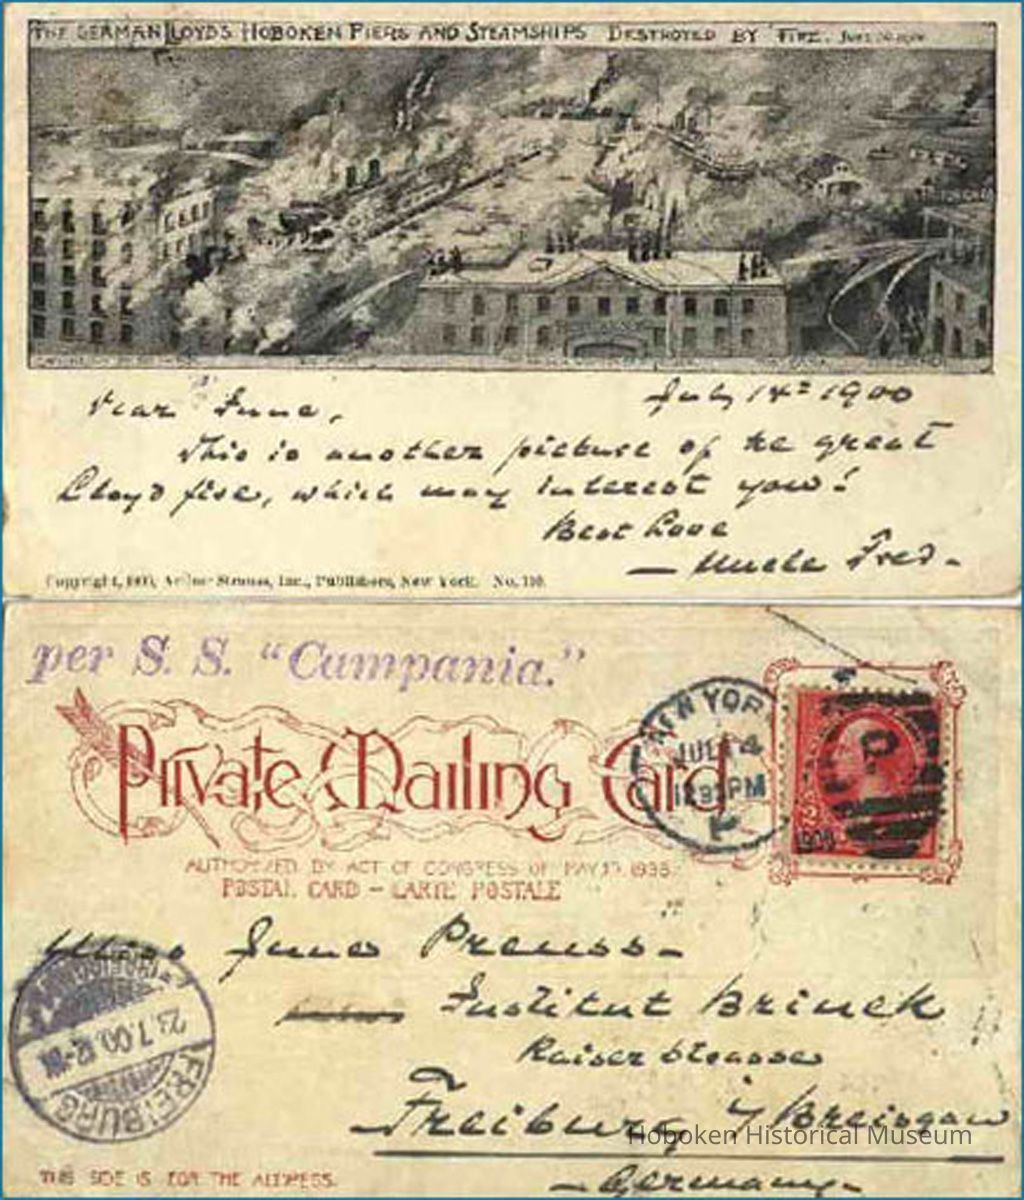 THE GERMAN LLOYDS HOBOKEN PIERS AND STEAMSHIPS DESTROYED BY FIRE.
Dear June,
July 14th 1900
This is another picture of the great
Lloyd fire, which may interest you!
Best Love
— Uncle Fred —
Copyright, 1900, Arthur Strauss, Inc., Publishers, New York. No. 110.
per S. S. "Campania."
NEW YORK
JUL 14
PM
Private Mailing Card
AUTHORIZED BY ACT OF CONGRESS OF MAY 19 1898.
POSTAL CARD - CARTE POSTALE
Miss June Preuss -
Institut Brinck
Kaiser strasse
Freiburg i/Breisgau
Germany -
FREIBURG
23.7.00.12-1N
THIS SIDE IS FOR THE ADDRESS.
Hoboken Historical Museum